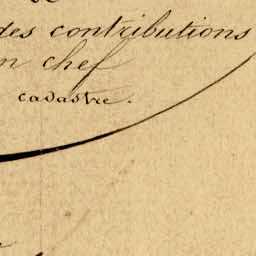 des contributions
en chef
cadastre.